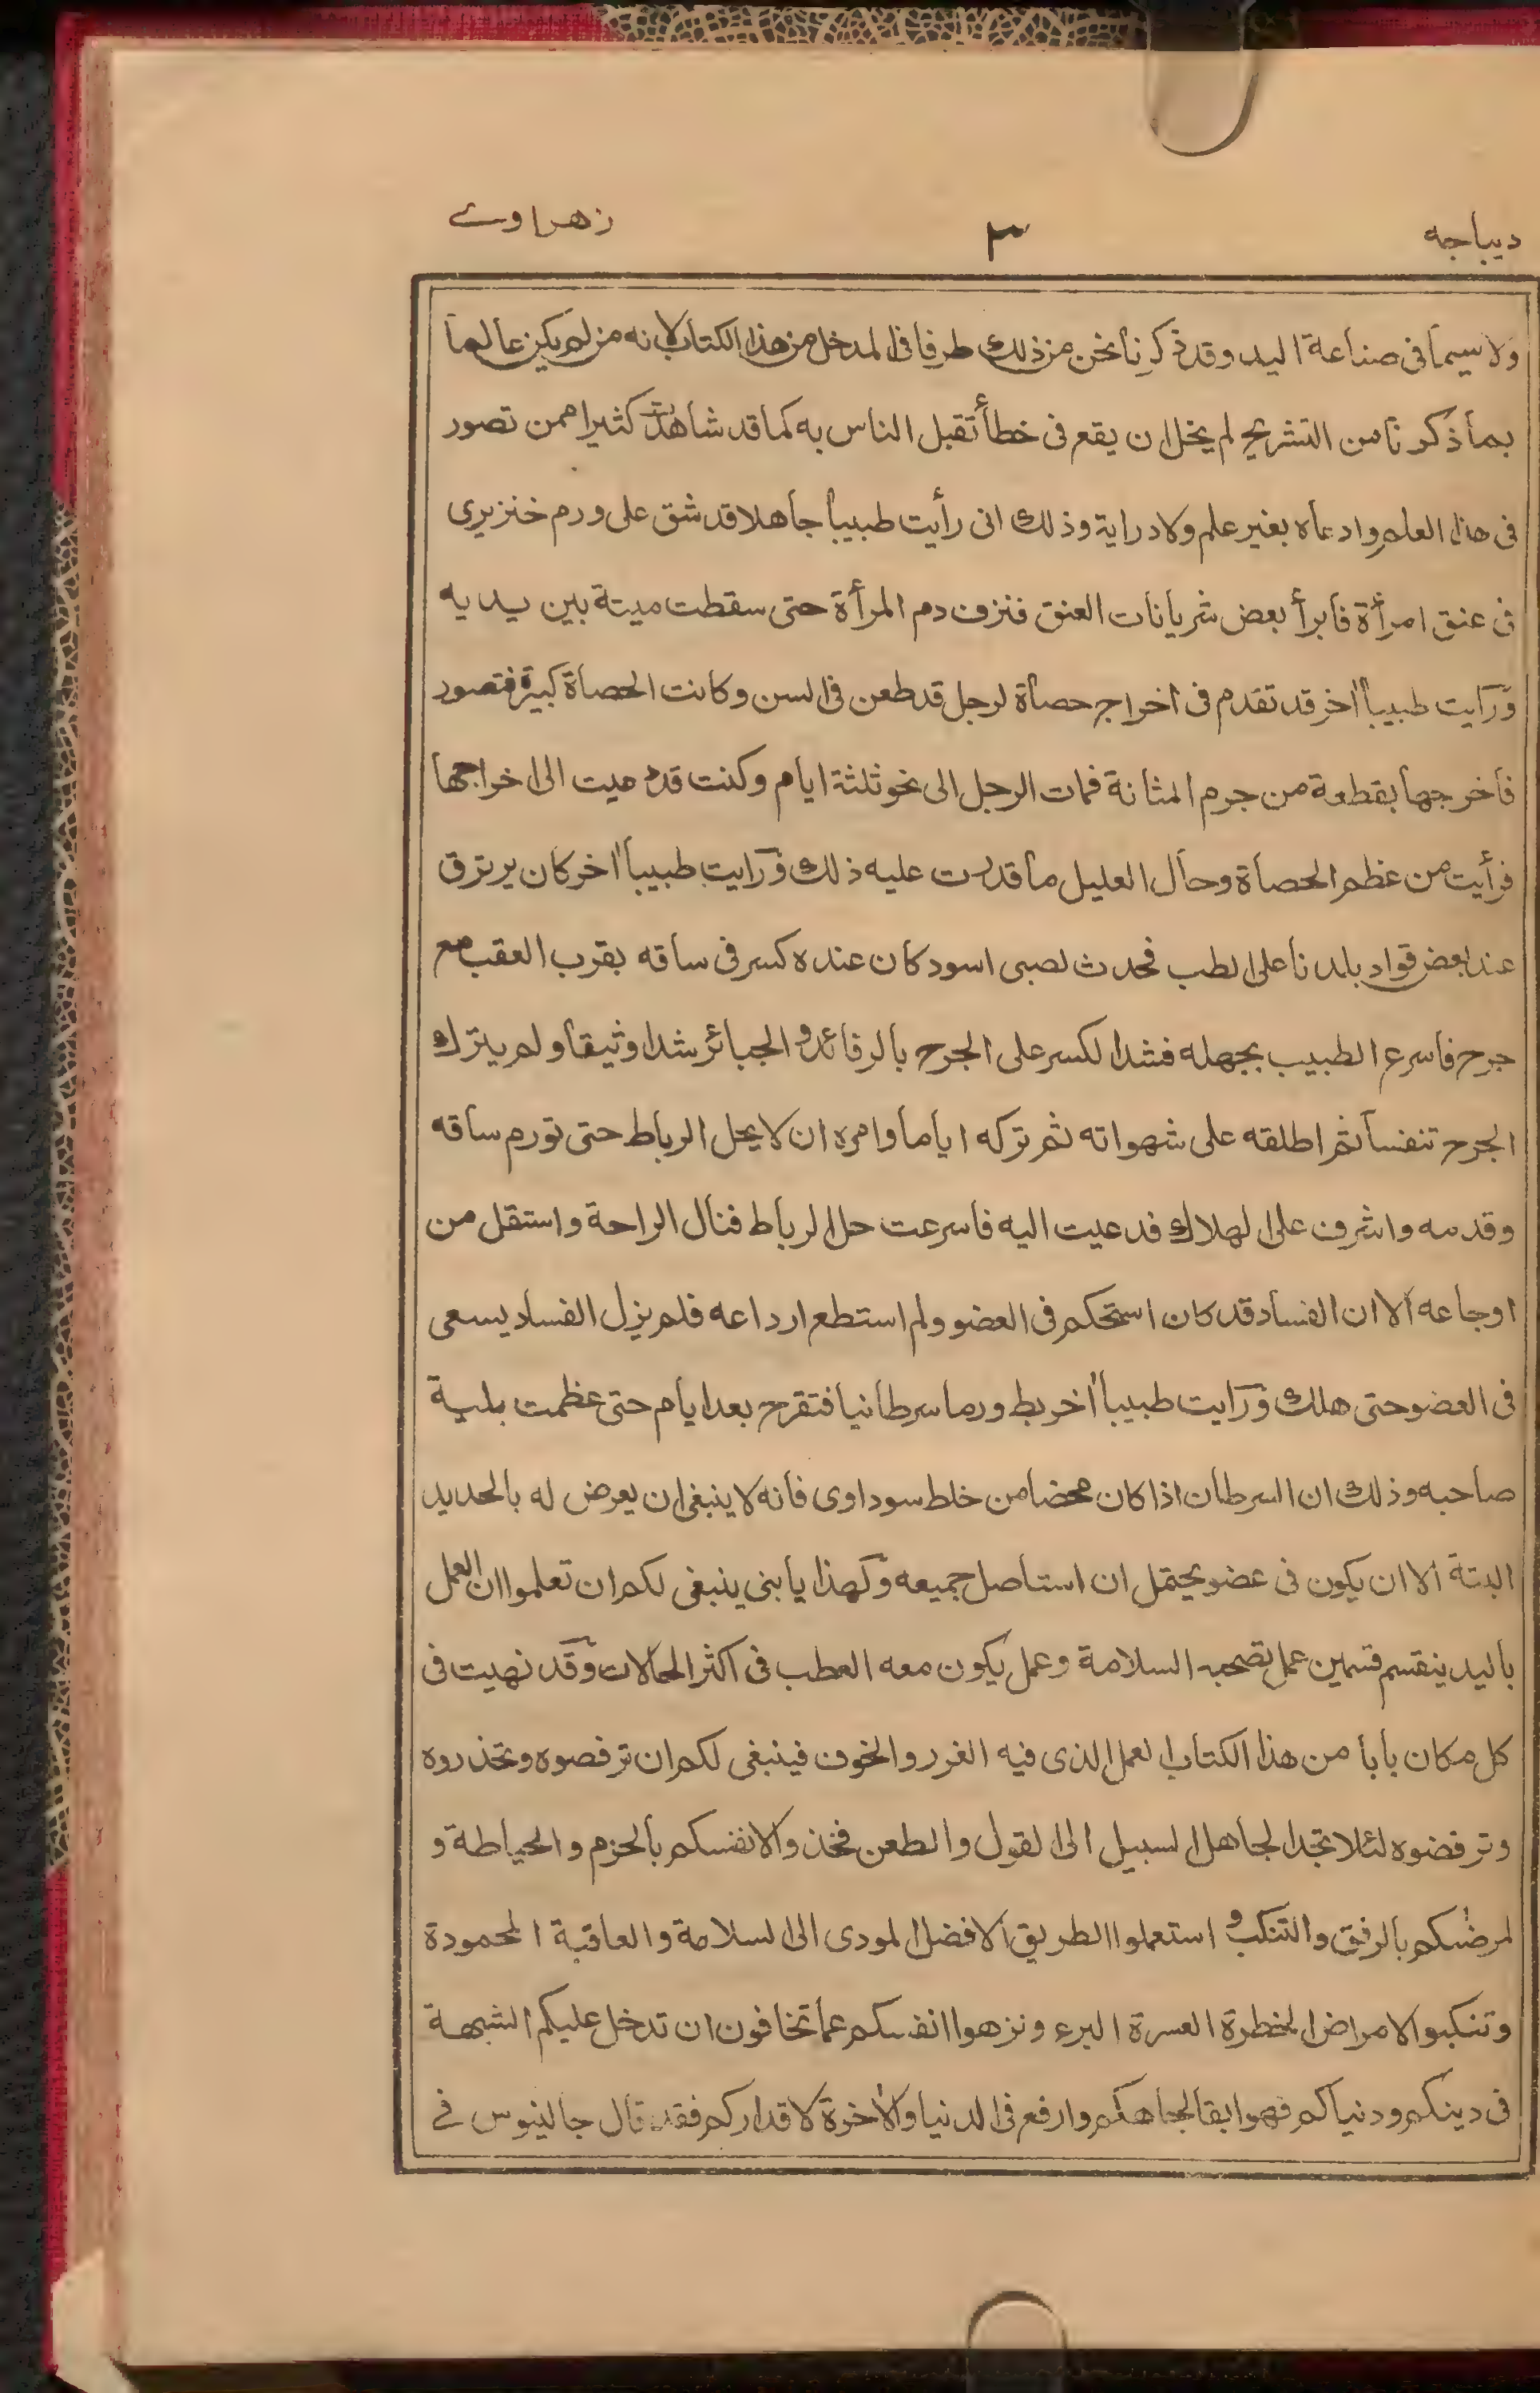 ديباجه ٣ زهراوے
ولا سيما فى صناعة اليد وقد ذكرنا نحن من ذلك طرفا فى المدخل من هذا الكتاب لانه من لم يكن عالما
بما ذكرنا من التشريح لم يخل ان يقع فى خطأ تقبل الناس به كما قد شاهدت كثيرا ممن تصور
فى هذا العلم وادعاه بغير علم ولا دراية وذلك انى رأيت طبيبا جاهلا قد شق على ورم خنزيرى
فى عنق امرأة فابرأ بعض شريانات العنق فنزف دم المرأة حتى سقطت ميتة بين يديه
ورايت طبيبا اخر قد تقدم فى اخراج حصاة لرجل قد طعن فى السن وكانت الحصاة كبيرة فتصور
فاخرجها بقطعة من جرم المثانة فمات الرجل الى نحو ثلثة ايام وكنت قد دعيت الى اخراجها
فرأيت من عظم الحصاة وحال العليل ما قدرت عليه ذلك ورايت طبيبا اخر كان يرتزق
عند بعض قواد بلدنا على الطب فحدث لصبى اسود كان عنده كسر فى ساقه بقرب العقب مع
جرح فاسرع الطبيب بجهله فشد الكسر على الجرح بالرفائد و الجبائر شدا وثيقا ولم يترك
الجرح تنفسا ثم اطلقه على شهواته ثم تركه اياما وامره ان لا يحل الرباط حتى تورم ساقه
وقدمه واشرف على الهلاك فدعيت اليه فاسرعت حل الرباط فنال الراحة واستقل من
اوجاعه الا ان الفساد قد كان استحكم فى العضو ولم استطع ارداعه فلم يزل الفساد يسعى
فى العضو حتى هلك ورايت طبيبا اخر بط ورما سرطانيا فتقرح بعد ايام حتى عظمت بلية
صاحبه وذلك ان السرطان اذا كان محضا من خلط سوداوى فانه لا ينبغى ان يعرض له بالحديد
البتة الا ان يكون فى عضو يحتمل ان استاصل جميعه ولهذا يا بنى ينبغى لكم ان تعلموا ان العمل
باليد ينقسم قسمين عمل تصحبه السلامة وعمل يكون معه العطب فى اكثر الحالات وقد نهيت فى
كل مكان بابا من هذا الكتاب العمل الذى فيه الغرر والخوف فينبغى لكم ان ترفصوه وتحذروه
وترفضوه لئلا تجد الجاهل السبيل الى القول والطعن فخذوا لانفسكم بالحزم والحياطة و
لمرضٰكم بالرفق والتنكب و استعملوا الطريق الافضل المودى الى السلامة والعاقبة المحمودة
وتنكبوا الامراض الخطرة العسرة البرء ونزهوا انفسكم عما تخافون ان تدخل عليكم الشبهة
فى دينكم ودنياكم فهو ابقا لجاهكم وارفع فى الدنيا والاخرة لاقداركم فقد قال جالينوس فے